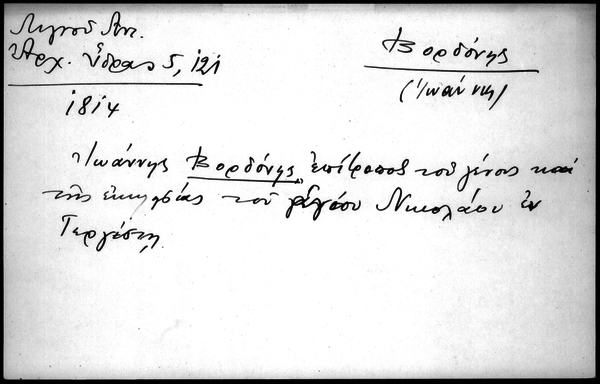 Λιγνοῦ Ἀντ.
Ἀρχ. Ὕδρας 5, 121
1814
Βορδόνης
(Ἰωάννης)
Ἰωάννης Βορδόνης, ἐπίτροπος τοῦ γένους καὶ
τῆς ἐκκλησίας τοῦ Νικολάου ἐν
Τεργέστῃ